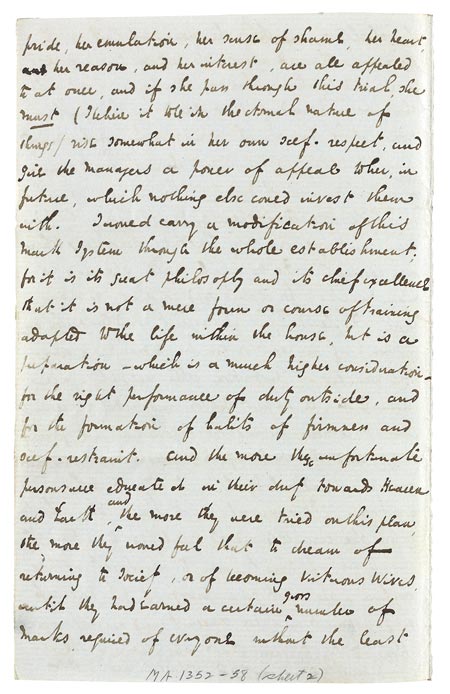 pride, her emulation, her sense of shame, her heart,
and her reason, and her interest, are all appealed
to at once, and if she pass through this trial, she
must (I believe it to be in the eternal nature of
things) rise somewhat in her own self-respect, and
give the managers a power of appeal to her, in
future, which nothing else could invest them
with. I would carry a modification of this
Mark System through the whole establishment;
for it is its great philosophy and its chief excellence
that it is not a mere form or course of training
adapted to the life within the house, but is a
preparation - which is a much higher consideration -
for the right performance of duty outside, and
for the formation of habits of firmness and
self-restraint. And the more these unfortunate
persons were educated in their duty towards Heaven
and Earth, and the more they were tried on this plan,
the more they would feel that to dream of
returning to Society, or of becoming Virtuous Wives,
until they had earned a certain gross number of
Marks required of everyone without the least
MA 1352-58 (sheet 2)